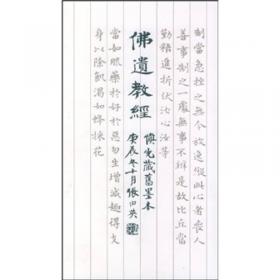 制當急挫之無令放逸縱此心者喪人
善事制之一處無事不辦是故比丘當
勤精進折伏汝心汝等
佛遺教經
藏舊墨本
庚辰冬十月張伯英
當如服藥於好於惡勿生增減趣得支
身以除飢渴如蜂採花